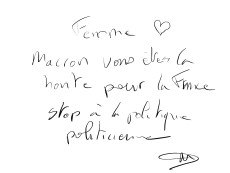 Femme ♡
Macron vous êtes la
honte pour la France
stop à la politique
politicienne